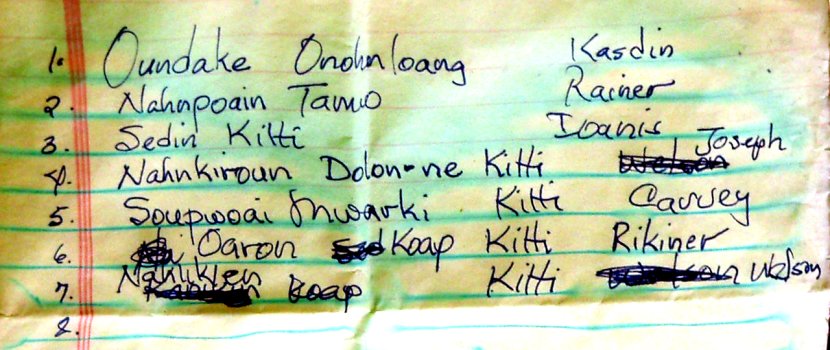 1. Oundake Onohnloang Kasdin
2. Nahnpoain Tamo Rainer
3. Sedin Kitti Ioanis
4. Nahnkiroun Dolon-ne Kitti Joseph
5. Soupwoai Kitti
6. Oaron Koap Kitti Rikiner
7. Nahliklen Koap Kitti Welson
8.